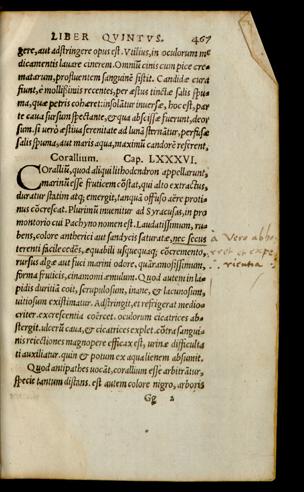 LIBER QVINTVS. 467
gere, aut adstringere opus est. Vtilius, in oculorum me
dicamentis lauare cinerem. Omniũ cinis cum pice cre⸗
matarum, profluentem sanguinẽ sistit. Candidæ cura
fiunt, è mollißimis recentes, per æstus tinctæ salis spu
ma, quæ petris cohæret: insolãtur inuersæ, hoc est, par
te caua sursum spectante, & qua abscissæ fuerunt, deor
sum. si uerò æstiua serenitate ad lunã sternãtur, perfusæ
salis spuma, aut maris aqua, maximũ candorẽ referent.
Corallium. Cap. LXXXVI.
Corallium, quod aliqui lithodendron appellarunt,
marinũ esse fruticem cõstat, qui alto extractus,
duratur statim atq; emergit, tanquã offuso aëre protĩ
nus cõcrescat. Plurimũ inuenitur ad Syracusas, in pro
montorio cui Pachyno nomen est. Laudatissimum, ru⸗
bens, colore antherici aut sandycis saturatæ, nec secus à Vero abho
terenti facile cedẽs, æquabili usquequaq; cõcremento, rret et expe
rursus algæ aut fuci marini odore. quàm ramosissimum, rientia
forma fruticis, cinamomi æmulum. Quod autem in la⸗
pidis duritiã coit, scrupulosum, inane, & lacunosum,
uitiosum existimatur. Adstringit, et refrigerat medio⸗
criter. excrescentia coërcet. oculorum cicatrices ab⸗
stergit. ulcerũ caua, & cicatrices explet. cõtra sangui⸗
nis reiectiones magnopere efficax est, urinæ difficulta
ti auxiliatur. quin & potum ex aqua lienem absumit.
Quod antipathes uocãt, corallium esse arbitrãtur,
specie tantum distans. est autem colore nigro, arboris
Gg 2